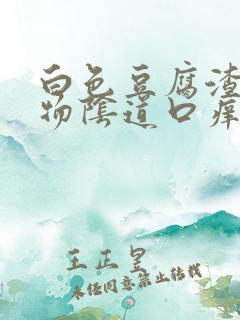 白色豆腐渣
物阴道口痒
王正皇
未经同意禁止转载